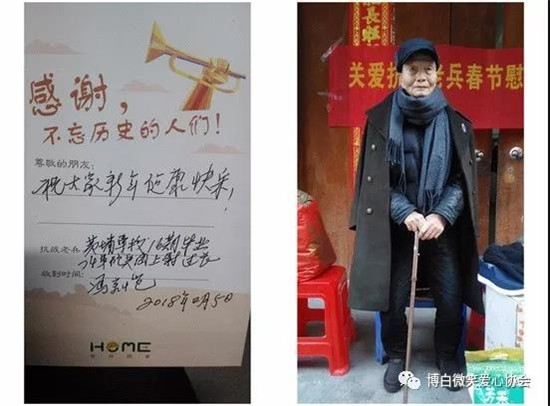 感谢，
不忘历史的人们！
尊敬的朋友：
祝大家新年健康快乐！
抗战老兵：黄埔军校16期毕业
74军炮兵团上尉连长
时间：
2018年2月5日
HOME
关爱抗战老兵春节慰
博白微笑爱心协会